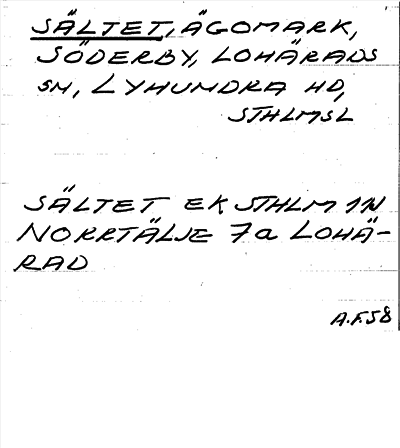 SÄLTET, ÄGOMARK,
SÖDERBY, LOHÄRADS
SN, LYHUNDRA HD,
STHLMSL
SÄLTET EK STHLM 1N
NORRTÄLJE 7a LOHÄ-
RAD
A.F.58